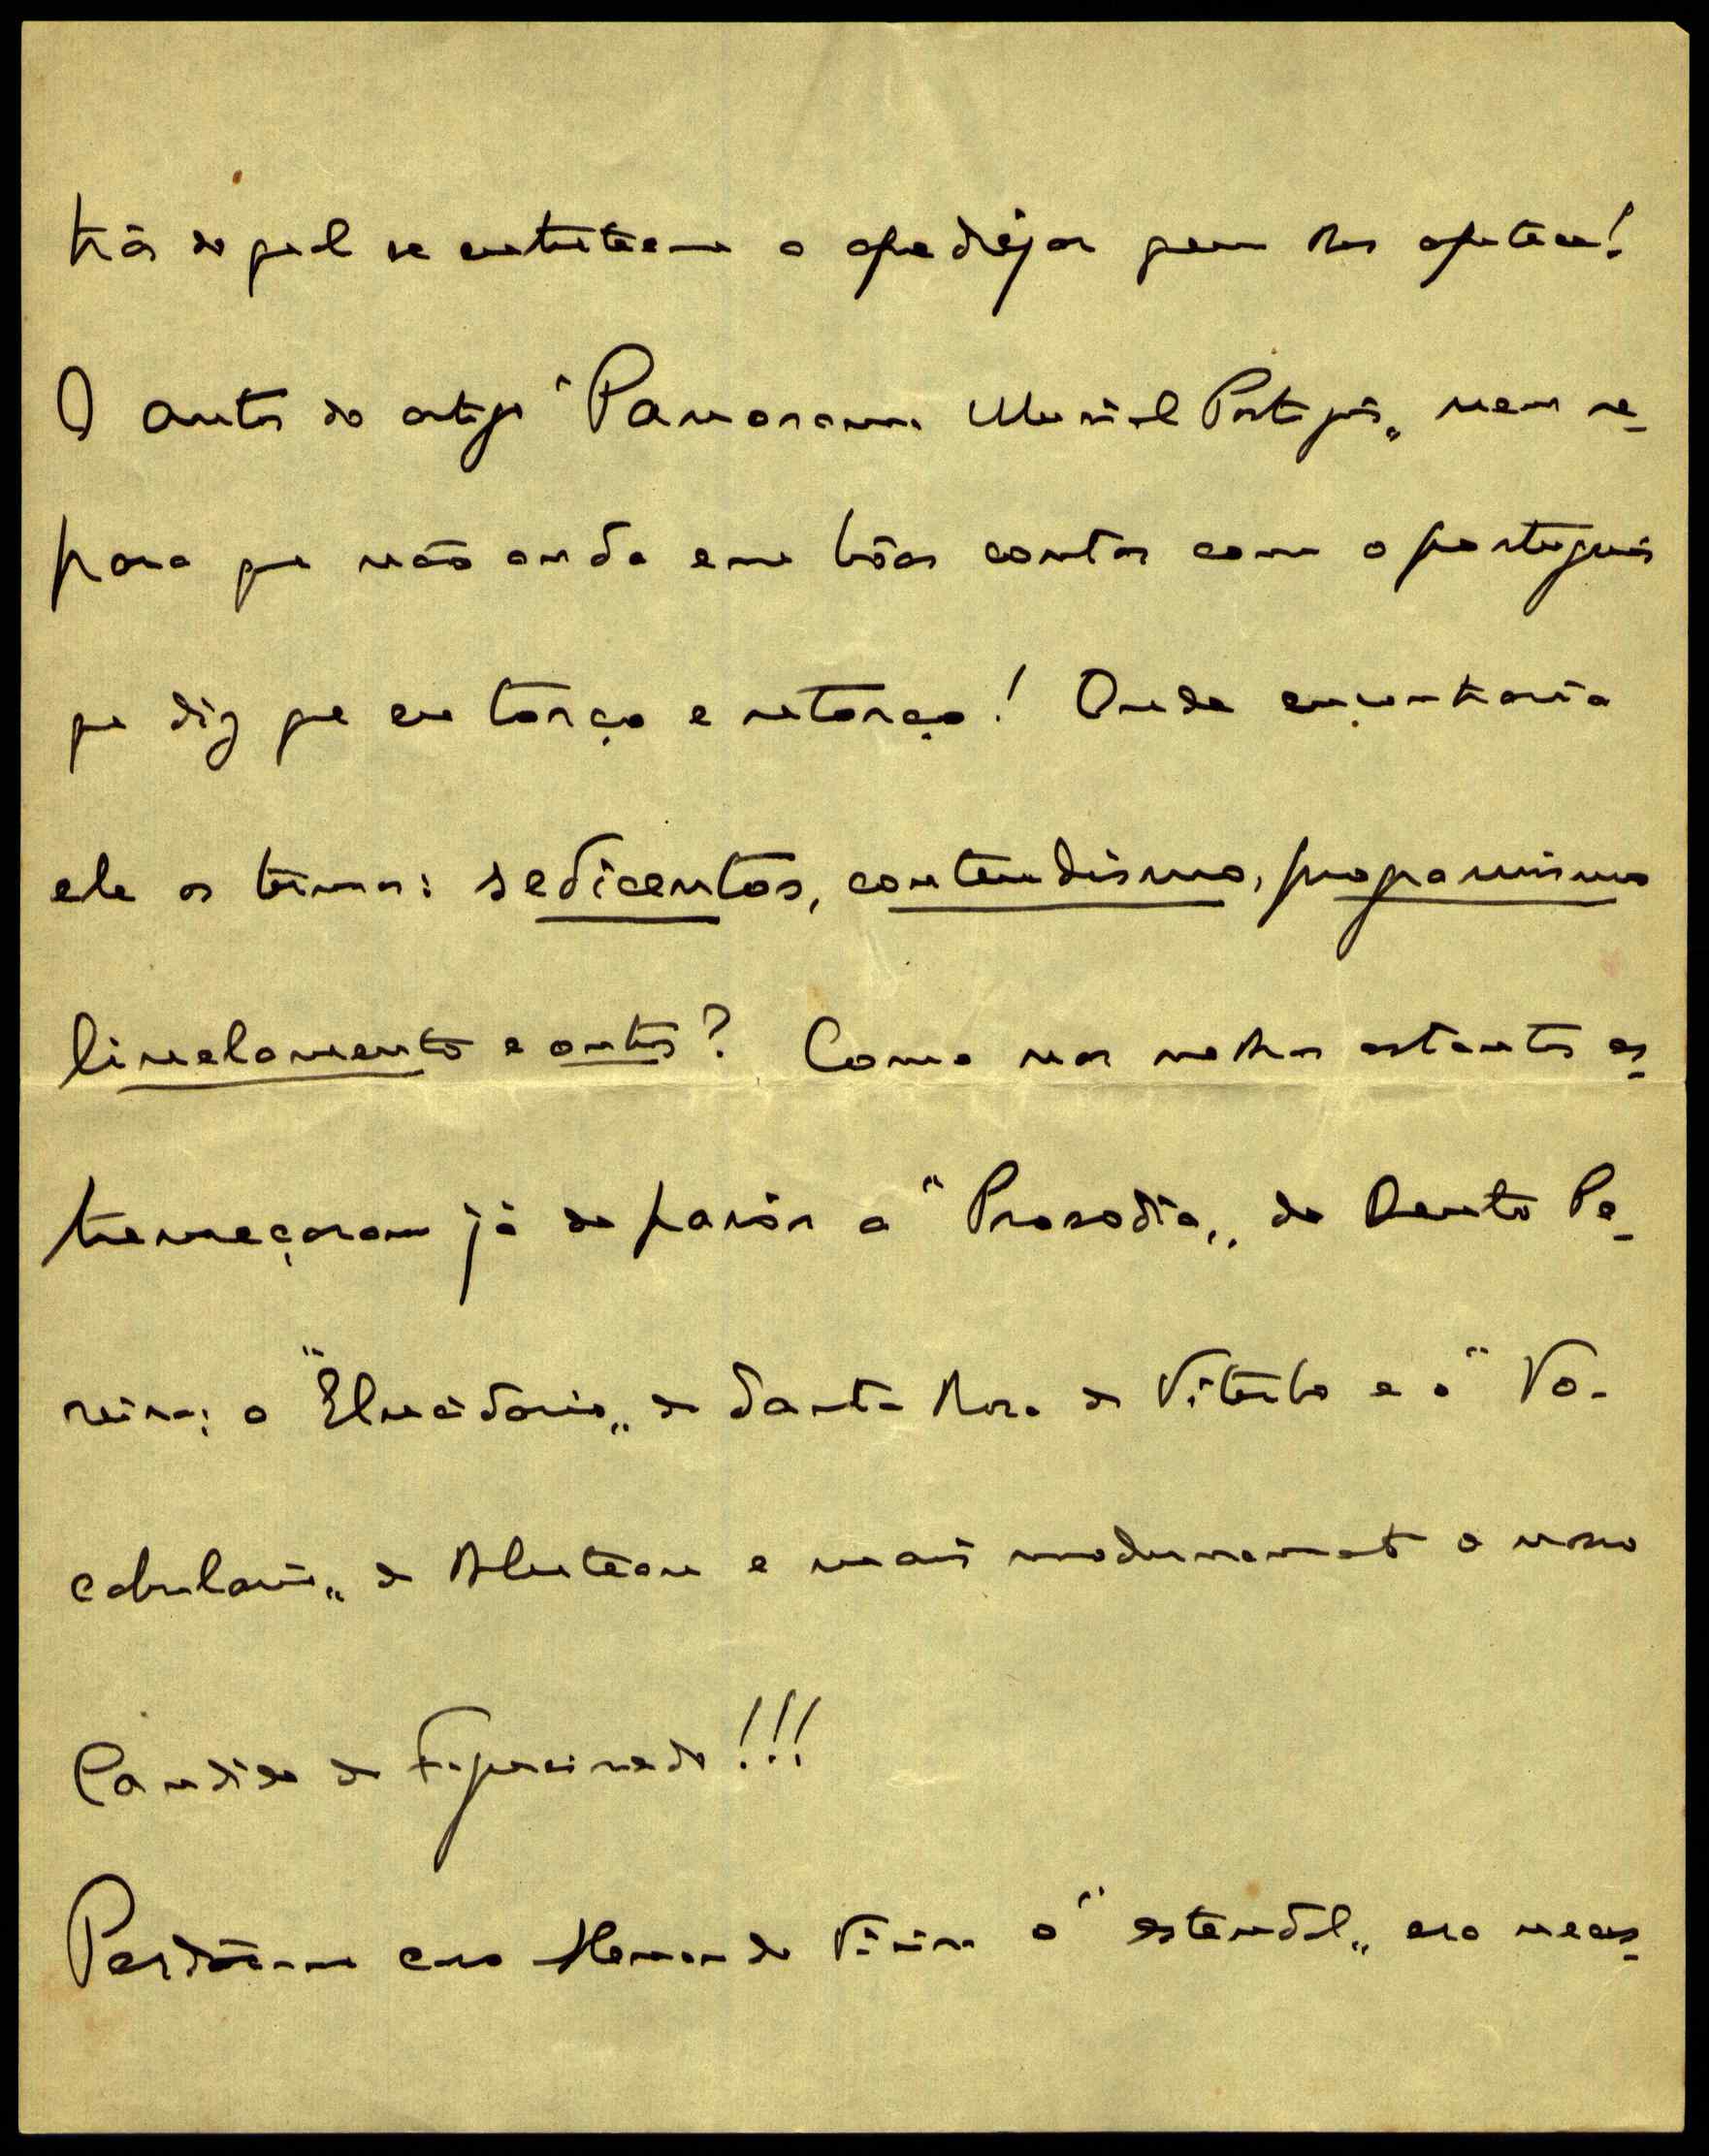 trás do qual se entretéem a apedrejar quem lhes apetece!
O autor do artigo "Panorama Musical Português„ nem re-
para que não anda em bôas contas com o português
que diz que eu torço e retorço! Onde encontraria
ele os têrmos: sedicentos, contendismo, proganismo
linelamento e outros? Como nas nossas estantes es-
tremeçeram já de pavôr a "Prosodia„ do Bento Pe-
reira; o "Elucidario„ de Santa Rosa de Viterbo e o "Vo-
cabulario„ de Bluteau e mais modernamente o nosso
Candido de Figueiredo!!!
Perdôe-me caro Hernando Vieira o "estendal„ era neces-